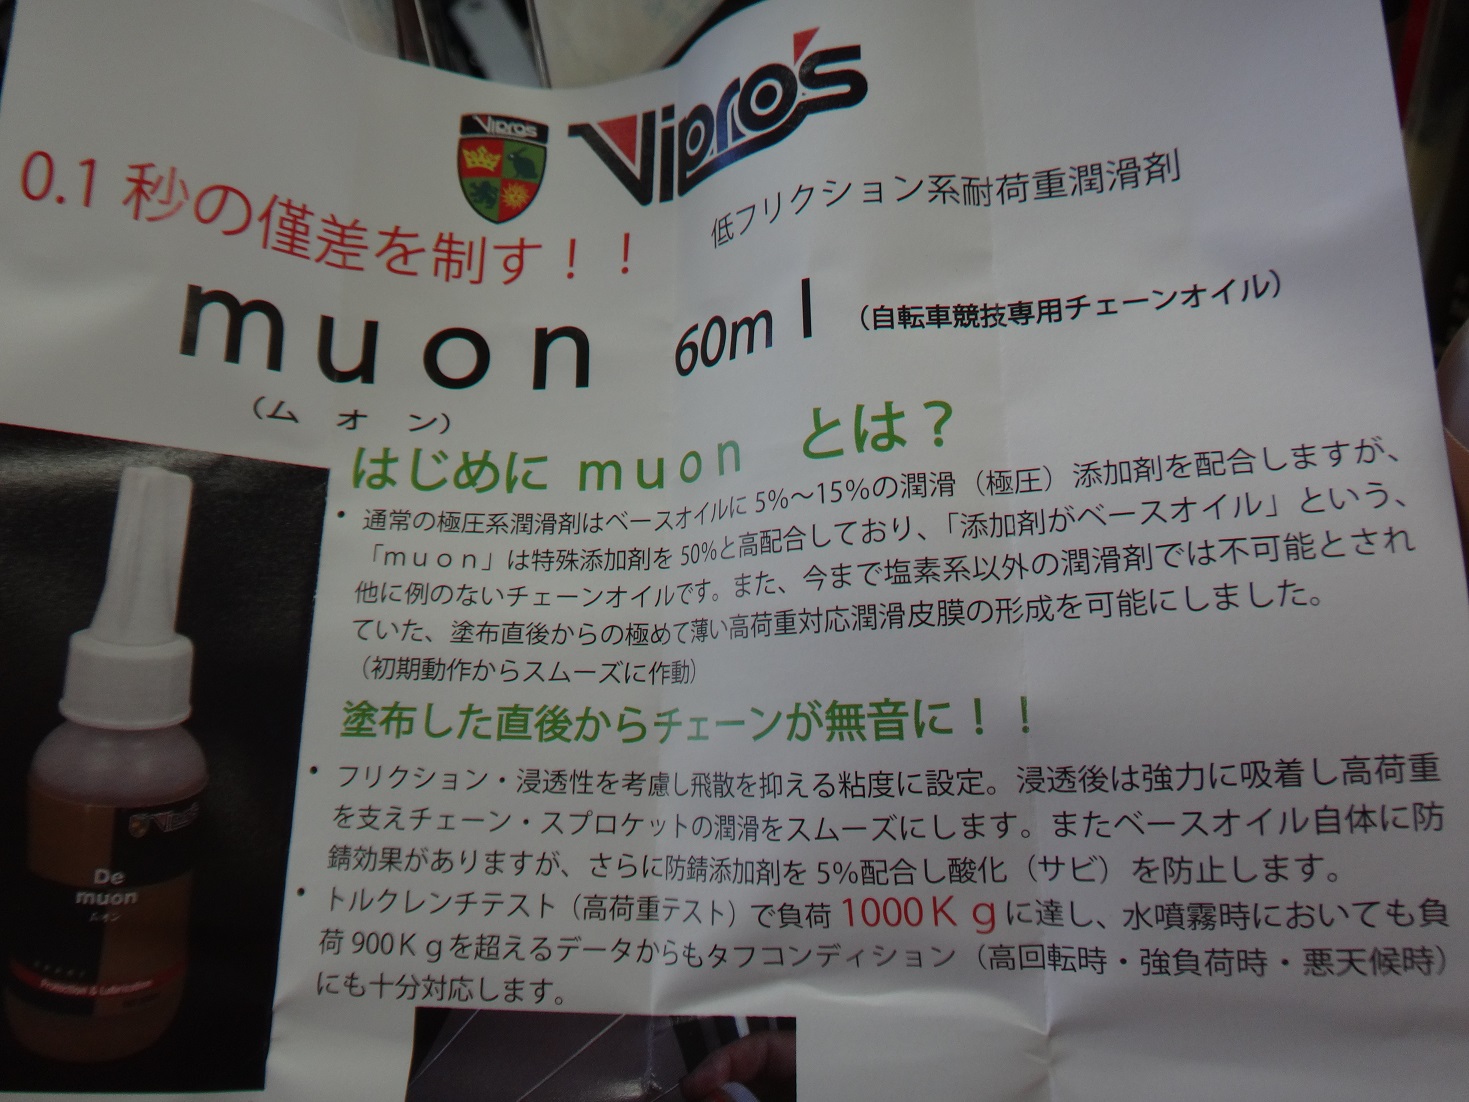 Vipro's
Vipro's
低フリクション系耐荷重潤滑剤
0.1 秒の僅差を制す！！
muon 60ml （自転車競技専用チェーンオイル）
（ムオン）
はじめに muon とは？
・通常の極圧系潤滑剤はベースオイルに 5%～15%の潤滑（極圧）添加剤を配合しますが、
「muon」は特殊添加剤を 50%と高配合しており、「添加剤がベースオイル」という、
他に例のないチェーンオイルです。また、今まで塩素系以外の潤滑剤では不可能とされ
ていた、塗布直後からの極めて薄い高荷重対応潤滑皮膜の形成を可能にしました。
（初期動作からスムーズに作動）
塗布した直後からチェーンが無音に！！
・フリクション・浸透性を考慮し飛散を抑える粘度に設定。浸透後は強力に吸着し高荷重
を支えチェーン・スプロケットの潤滑をスムーズにします。またベースオイル自体に防
錆効果がありますが、さらに防錆添加剤を 5%配合し酸化（サビ）を防止します。
・トルクレンチテスト（高荷重テスト）で負荷 1000Kgに達し、水噴霧時においても負
荷 900Kgを超えるデータからもタフコンディション（高回転時・強負荷時・悪天候時）
にも十分対応します。
Vipro's
De
muon
ムオン
Protection & Lubrication